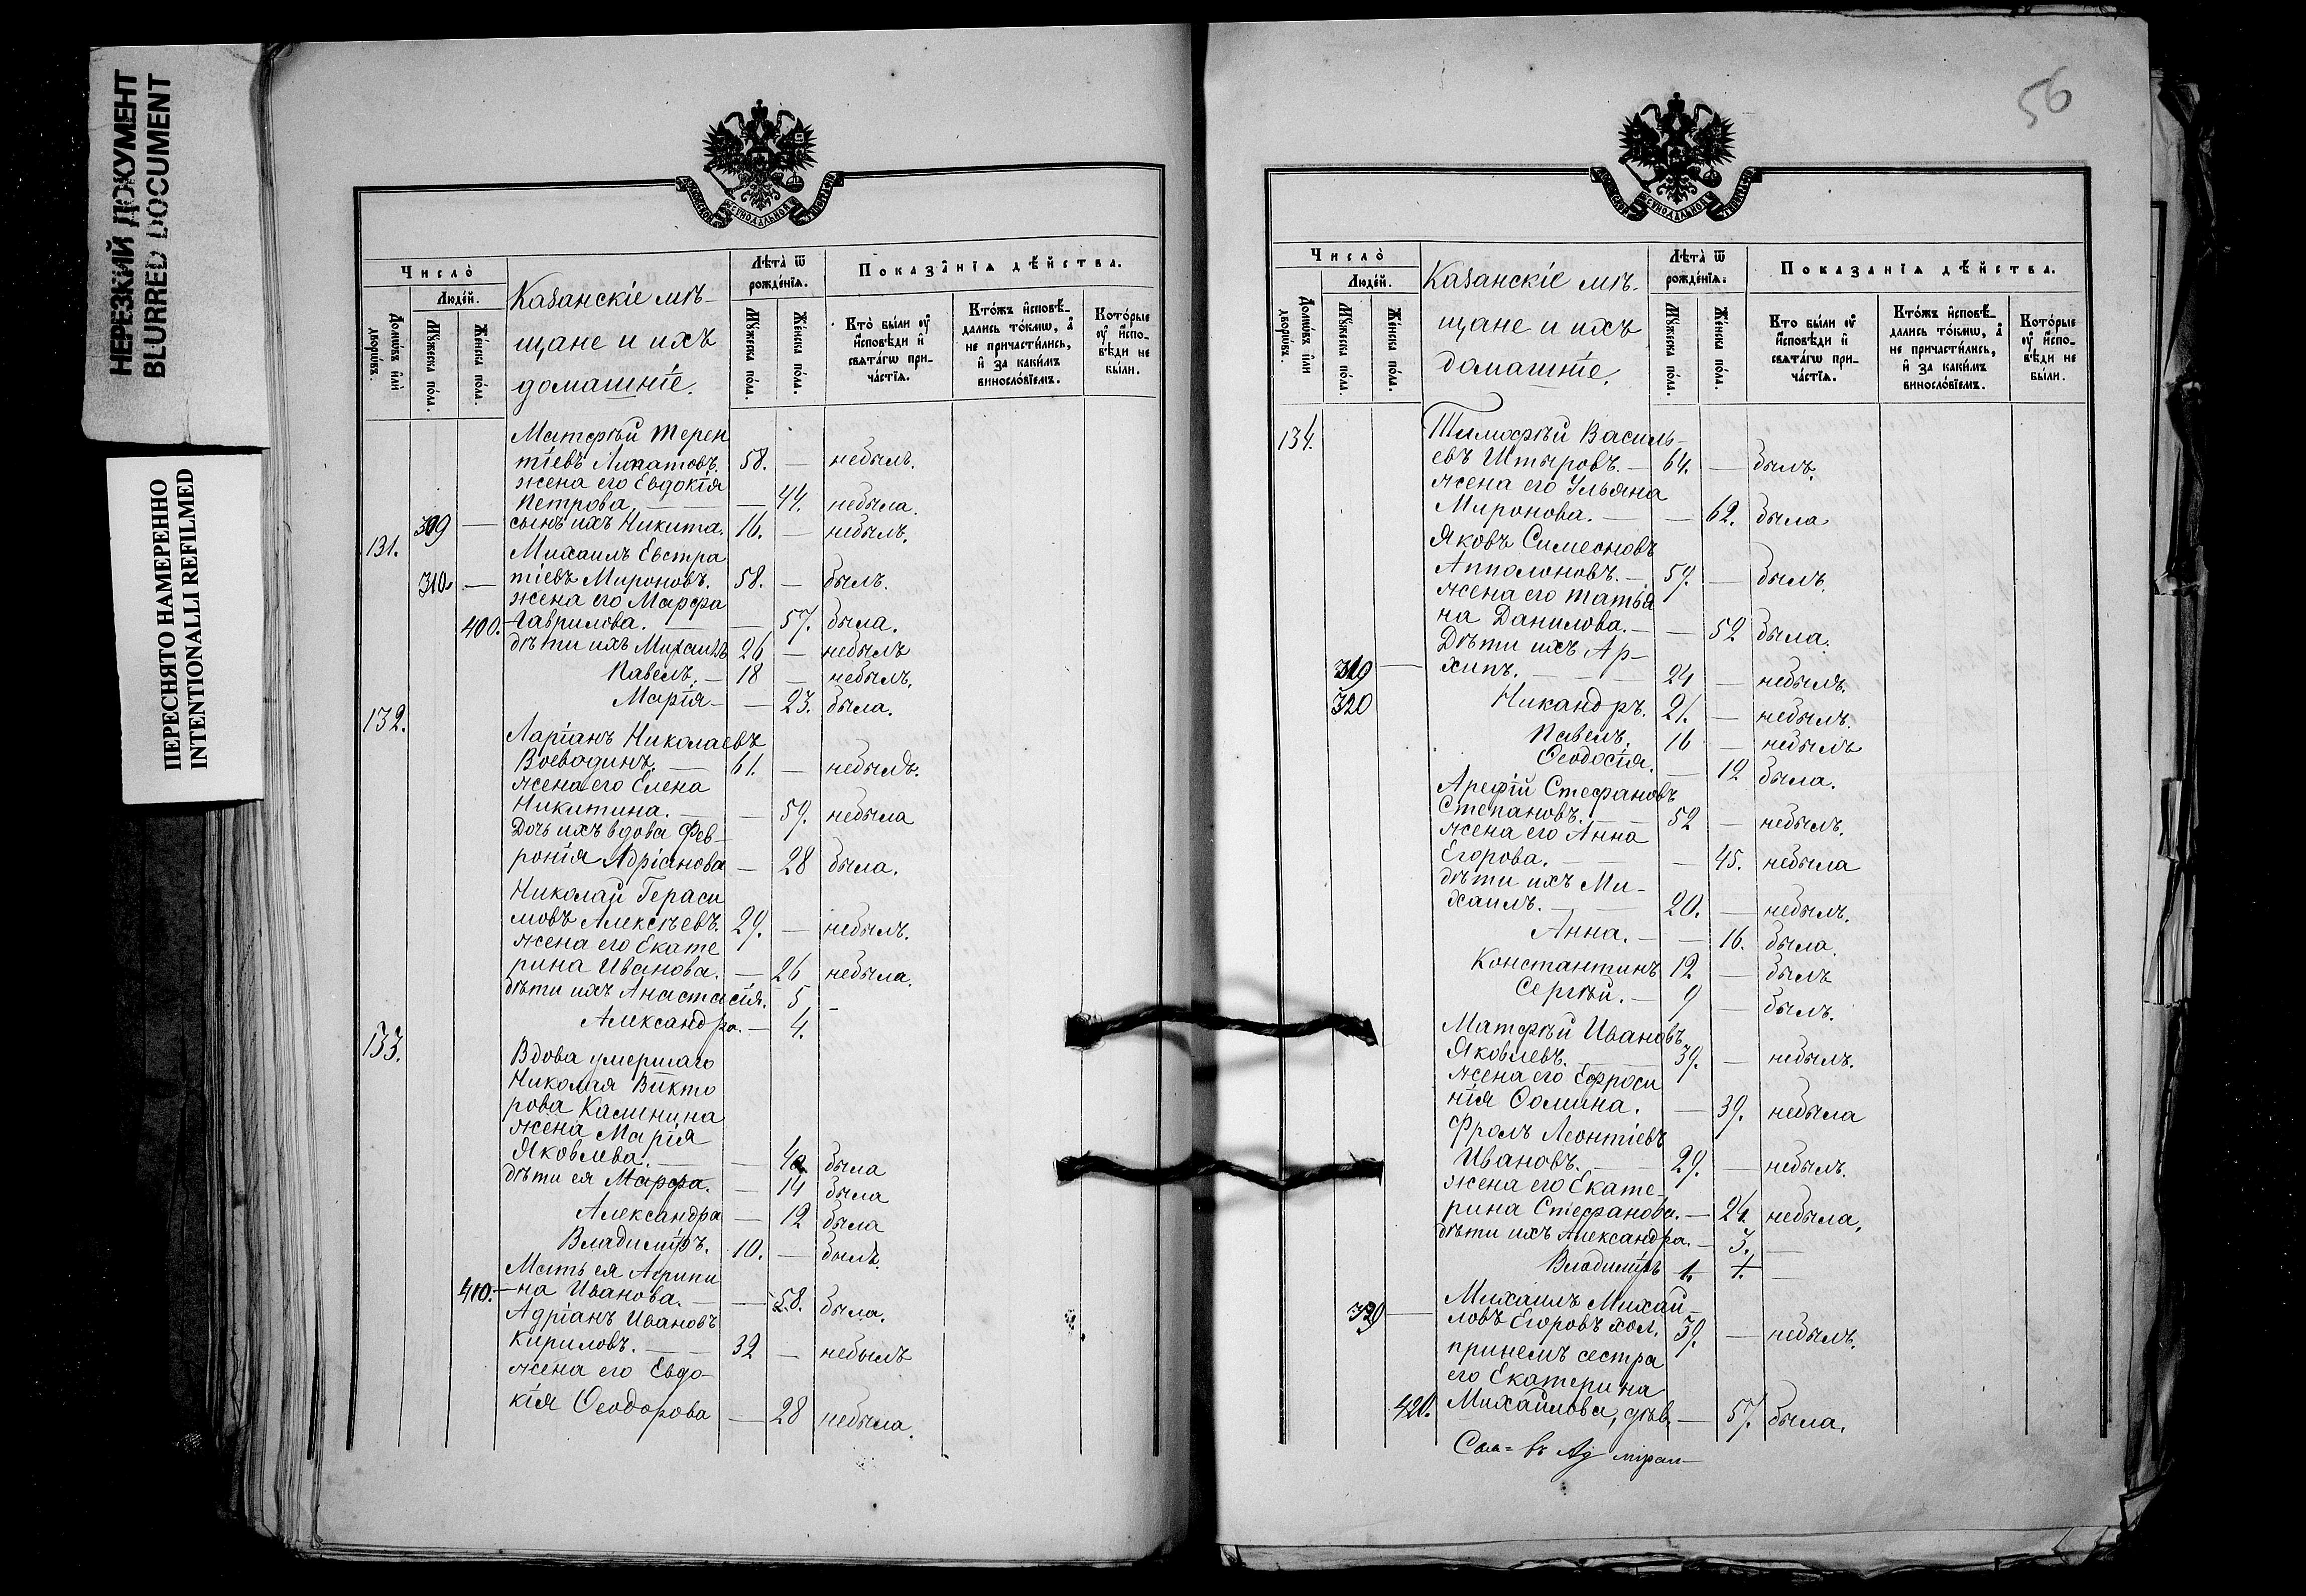 НЕРЕЗКИЙ ДОКУМЕНТ
BLURRED DOCUMENT
ПЕРЕСНЯТО НАМЕРЕННО
INTENTIONALLI REFILMED
Число̀ Лѣта̀ ѿ рожде́нїѧ. Показа̑нїѧ дѣ́йства.
Люде́й.
Домѡ́въ и҆лѝ дворѡ́въ. Мꙋ́жеска по́ла. Же́нска по́ла.
Казанскіе мѣ-
щане и ихъ
домашніе.
Мꙋ́жеска по́ла. Же́нска по́ла.
Кто̀ бы́ли ᲂу҆ и҆сповѣди и҆ свѧта́гѡ причастїѧ.
Кто́жъ и҆сповѣ́дались то́кмѡ, а҆ не причасти́лись, и҆ за каки́мъ винословїемъ.
Кото́рые ᲂу҆ и҆сповѣди не бы́ли.
Матѳѣй Терен
тіевъ Липатовъ. 58. — небылъ.
жена его Евдокія
Петрова — 44. небыла.
309 — сынъ ихъ Никита. 16. — небылъ.
131. Михаилъ Евстра
310. — тіевъ Мироновъ. 58. — былъ.
жена его Марфа
400. Гаврилова. — 57. была.
дѣти ихъ Михаилъ 26 — небылъ
Павелъ. — 18 — небылъ.
Марія — — 23. была.
132. Ларіанъ Николаевъ
Воеводинъ. — 61. — небылъ.
жена его Елена
Никитина. — 59. небыла
Дочь ихъ вдова Фев-
ронія Адріанова — 28 была.
Николай Гераси
мовъ Алексѣевъ. 29. — небылъ.
жена его Екате
рина Иванова. — 26 небыла.
дѣти ихъ Анастасія. 5 —
Александра. — 4.
133. Вдова умершаго
Николая Викто
рова Калинина
жена Марія
Яковлева. — была
дѣти ея Марфа. — 14 была
Александра — 12 была
Владиміръ. 10. — былъ.
Мать ея Агрипи
410. — на Иванова. — 58. была.
Адріанъ Ивановъ
Кириловъ. — 32 — небылъ
жена его Евдо-
кія Ѳеодорова — 28 небыла.
56
Число̀ Лѣта̀ ѿ рожде́нїѧ. Показа̑нїѧ дѣ́йства.
Люде́й.
Домѡ́въ и҆лѝ дворѡ́въ. Мꙋ́жеска по́ла. Же́нска по́ла.
Казанскіе мѣ-
щане и ихъ
домашніе.
Мꙋ́жеска по́ла. Же́нска по́ла.
Кто̀ бы́ли ᲂу҆ и҆сповѣди и҆ свѧта́гѡ причастїѧ.
Кто́жъ и҆сповѣ́дались то́кмѡ, а҆ не причасти́лись, и҆ за каки́мъ винословїемъ.
Кото́рые ᲂу҆ и҆сповѣди не бы́ли.
134. Тимофѣй Василь-
евъ Штыровъ. — 64. — былъ.
жена его Ульяна
Миронова. — — 62. была
Яковъ Симеоновъ
Апполоновъ. — 59. — былъ.
жена его Татья
на Данилова. — — 52 была.
Дѣти ихъ Ар-
319 — хипъ. — 24 — небылъ.
320 Никандръ. 21. — небылъ.
Павелъ. 16 — небылъ
Ѳеодосія. — 12 была.
Арефій Стефановъ
Степановъ. — 52 — небылъ.
жена его Анна
Егорова. — — 45. небыла
дѣти ихъ Ми-
хаилъ. — 20. — небылъ.
Анна. — — 16. была.
Константинъ 12 — былъ
Сергѣй. — 9 — былъ.
Матфѣй Ивановъ
Яковлевъ. — 39. — небылъ.
жена его Ефроси
нія Ѳомина. — 39. небыла
Фролъ Леонтіевъ
Ивановъ. — 29. — небылъ.
жена его Екате-
рина Стефанова. — 24 небыла.
дѣти ихъ Александра. — 3. —
Владиміръ 1. —
Михаилъ Михай-
ловъ Егоровъ хол. 39. — небылъ.
принемъ сестра
его Екатерина
420. Михайлова, дѣв. — 57. была.